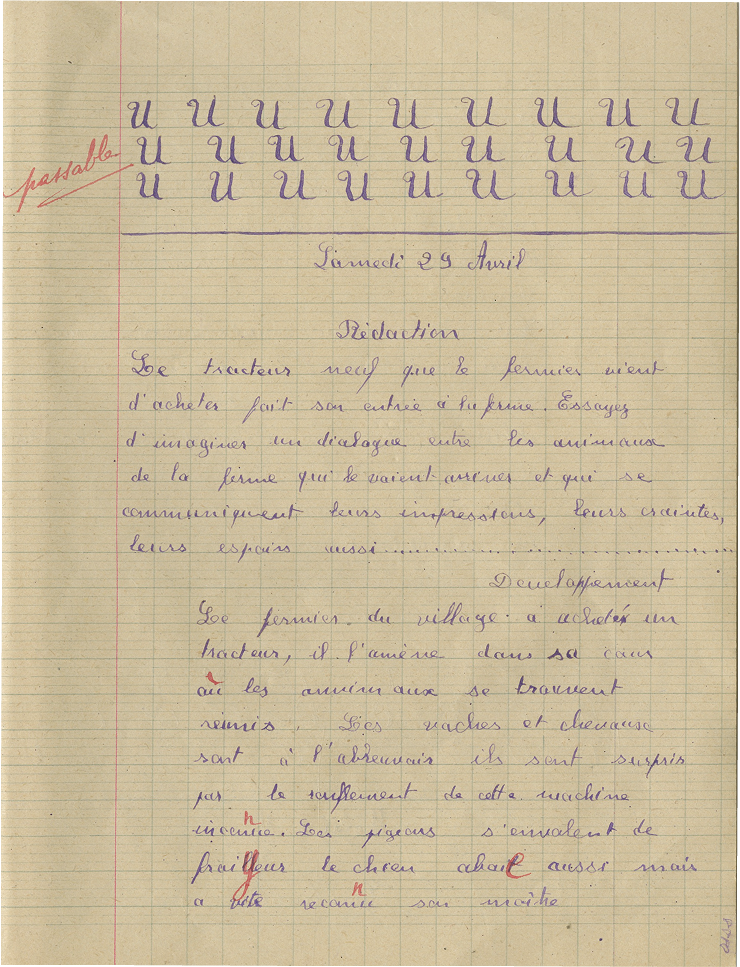 U U U U U U U U U
passable
U U U U U U U U U
U U U U U U U U U
Samedi 29 Avril
Rédaction
Le tracteur neuf que le fermier vient
d'acheter fait son entrée à la ferme. Essayez
d'imaginer un dialogue entre les animaux
de la ferme qui le voient arriver et qui se
communiquent leurs impressions, leurs craintes,
leurs espoirs aussi..............................
Developpement
Le fermier du village à acheté un
tracteur, il l'amène dans sa cour
où les annimaux se trouvent
réunis. Les vaches et chevaux
sont à l'abreuvoir ils sont surpris
par le ronflement de cette machine
inconnue. Les pigeons s'envolent de
frayeur le chien aboie aussi mais
a vite reconnu son maître